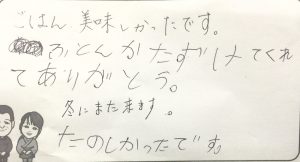 ごはん、美味しかったです。
おとんかたずけてくれ
てありがとう。
冬にまた来ます。
たのしかったです。